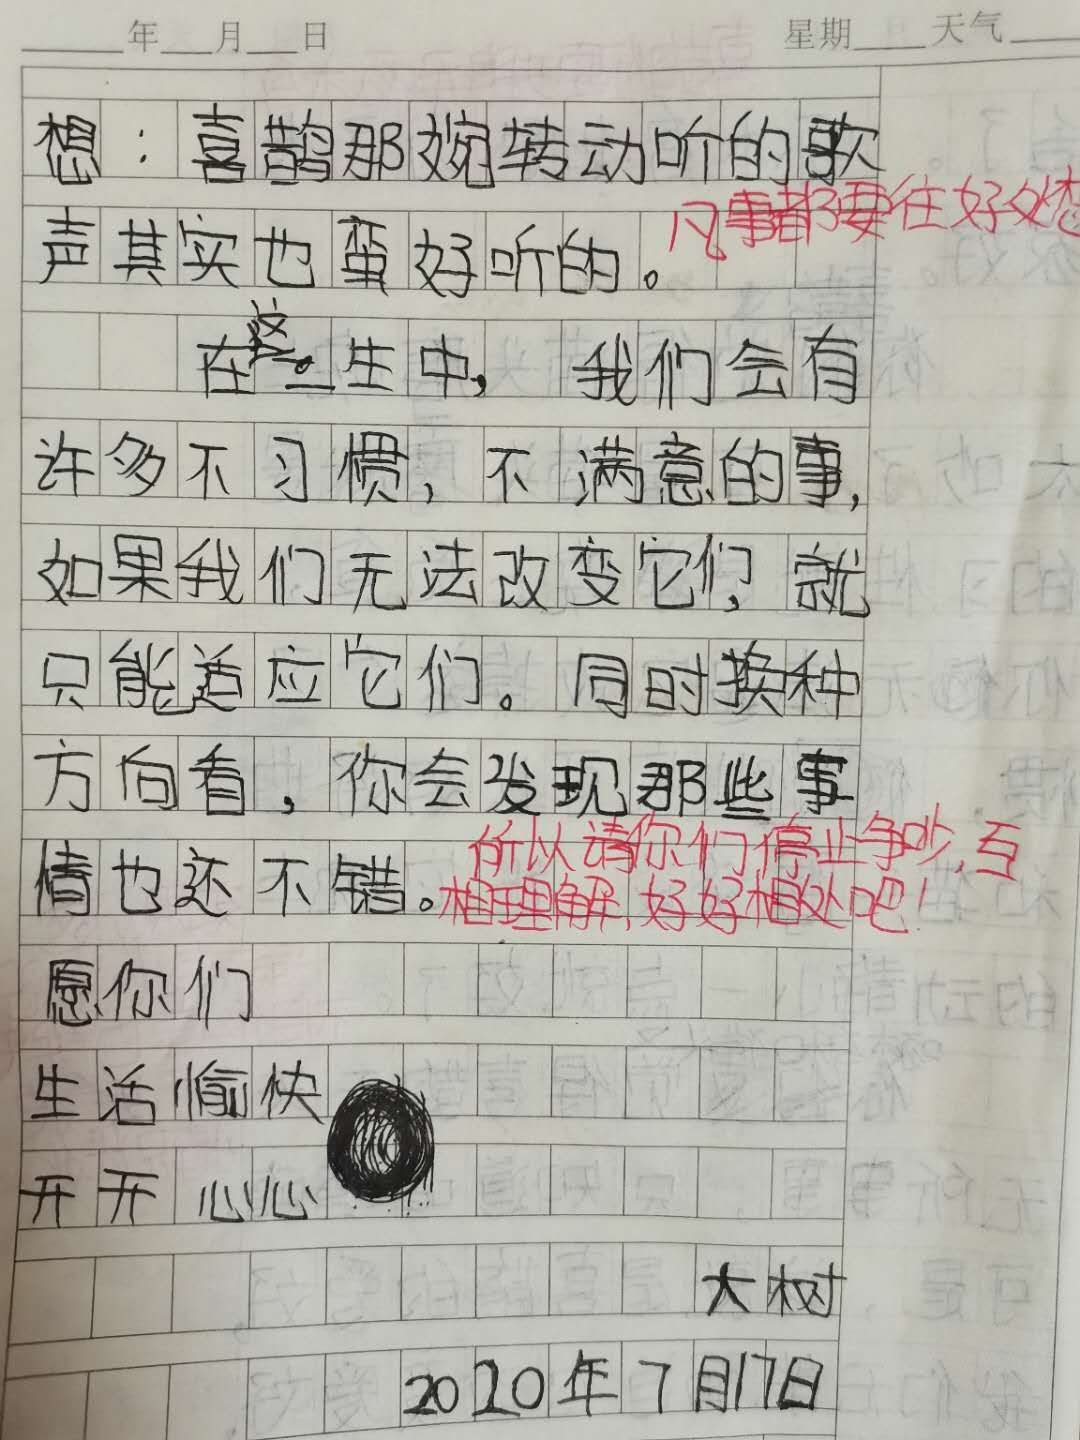 年 月 日 星期 天气
想：喜鹊那婉转动听的歌
声其实也蛮好听的。
凡事都要往好处想
在这一生中，我们会有
许多不习惯，不满意的事，
如果我们无法改变它们，就
只能适应它们。同时换种
方向看，你会发现那些事
情也还不错。
所以请你们停止争吵，互
相理解，好好相处吧！
愿你们
生活愉快
开开心心
大树
2020年7月17日